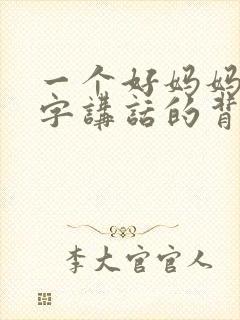 一个好妈妈
字講話的背
李大官官人